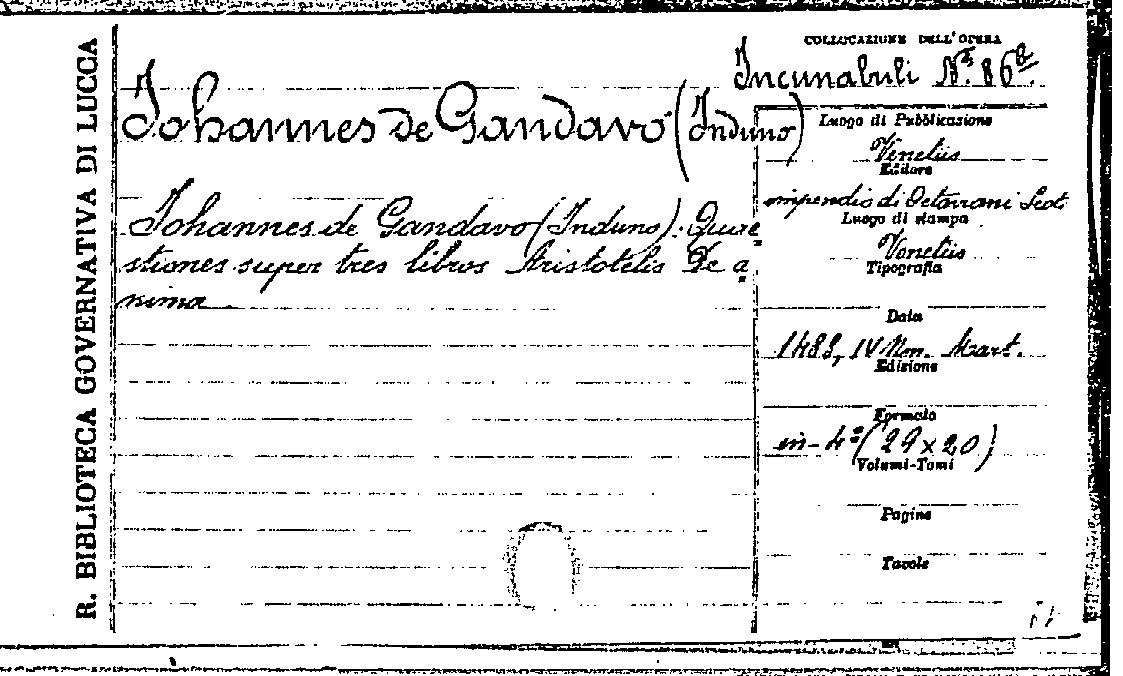 R. BIBLIOTECA GOVERNATIVA DI LUCCA
COLLOCAZIONE DELL'OPERA
Incunabuli N.º 86ª
Johannes de Gandavo (Induno)
Johannes de Gandavo (Induno). Quae=
stiones super tres libros Aristotelis De a=
nima
Luogo di Pubblicazione
Venetiis
Editore
impendio di Octaviani Scoti
Luogo di stampa
Venetiis
Tipografia
Data
IV Mart.
Edizione
Formato
in-4º (29x20)
Volumi-Tomi
Pagine
Tavole